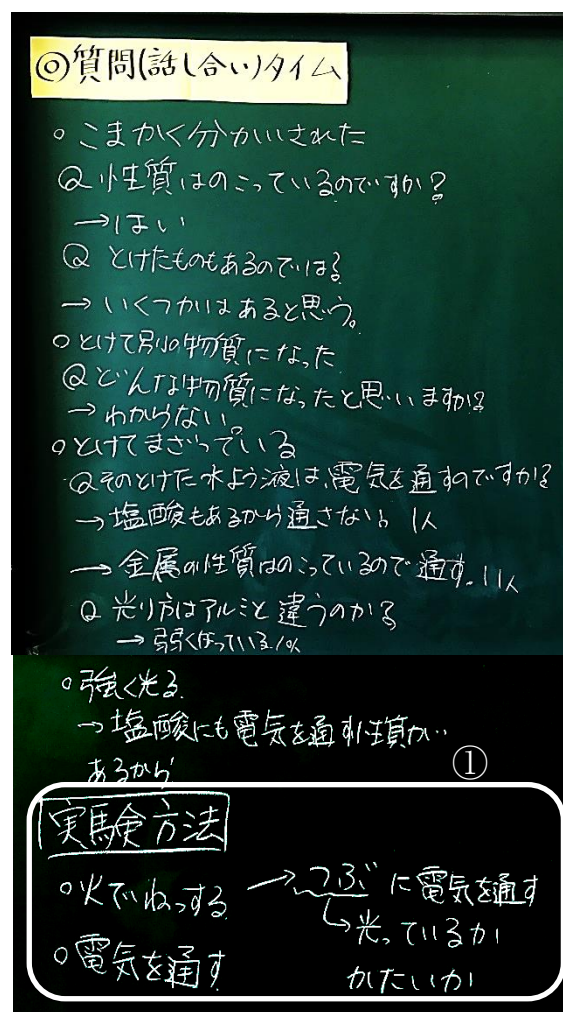 ◎質問(話し合い)タイム
○こまかく分かいされた
Q 性質はのこっているのですか?
→はい
Q とけたものもあるのでは?
→いくつかはあると思う。
○とけて別の物質になった
Q どんな物質になったと思いますか?
→わからない。
○とけてまざっている
Qそのとけた水よう液は、電気を通すのですか?
→塩酸もあるから通さない。1人
→金属の性質はのこっているので通す。11人
Q 光り方はアルミと違うのか?
→弱くなっている
○強く光る
→塩酸にも電気を通す性質が
あるから
①
実験方法
○火でねっする→つぶに電気を通す
↳光っているか
○電気を通す
かたいか